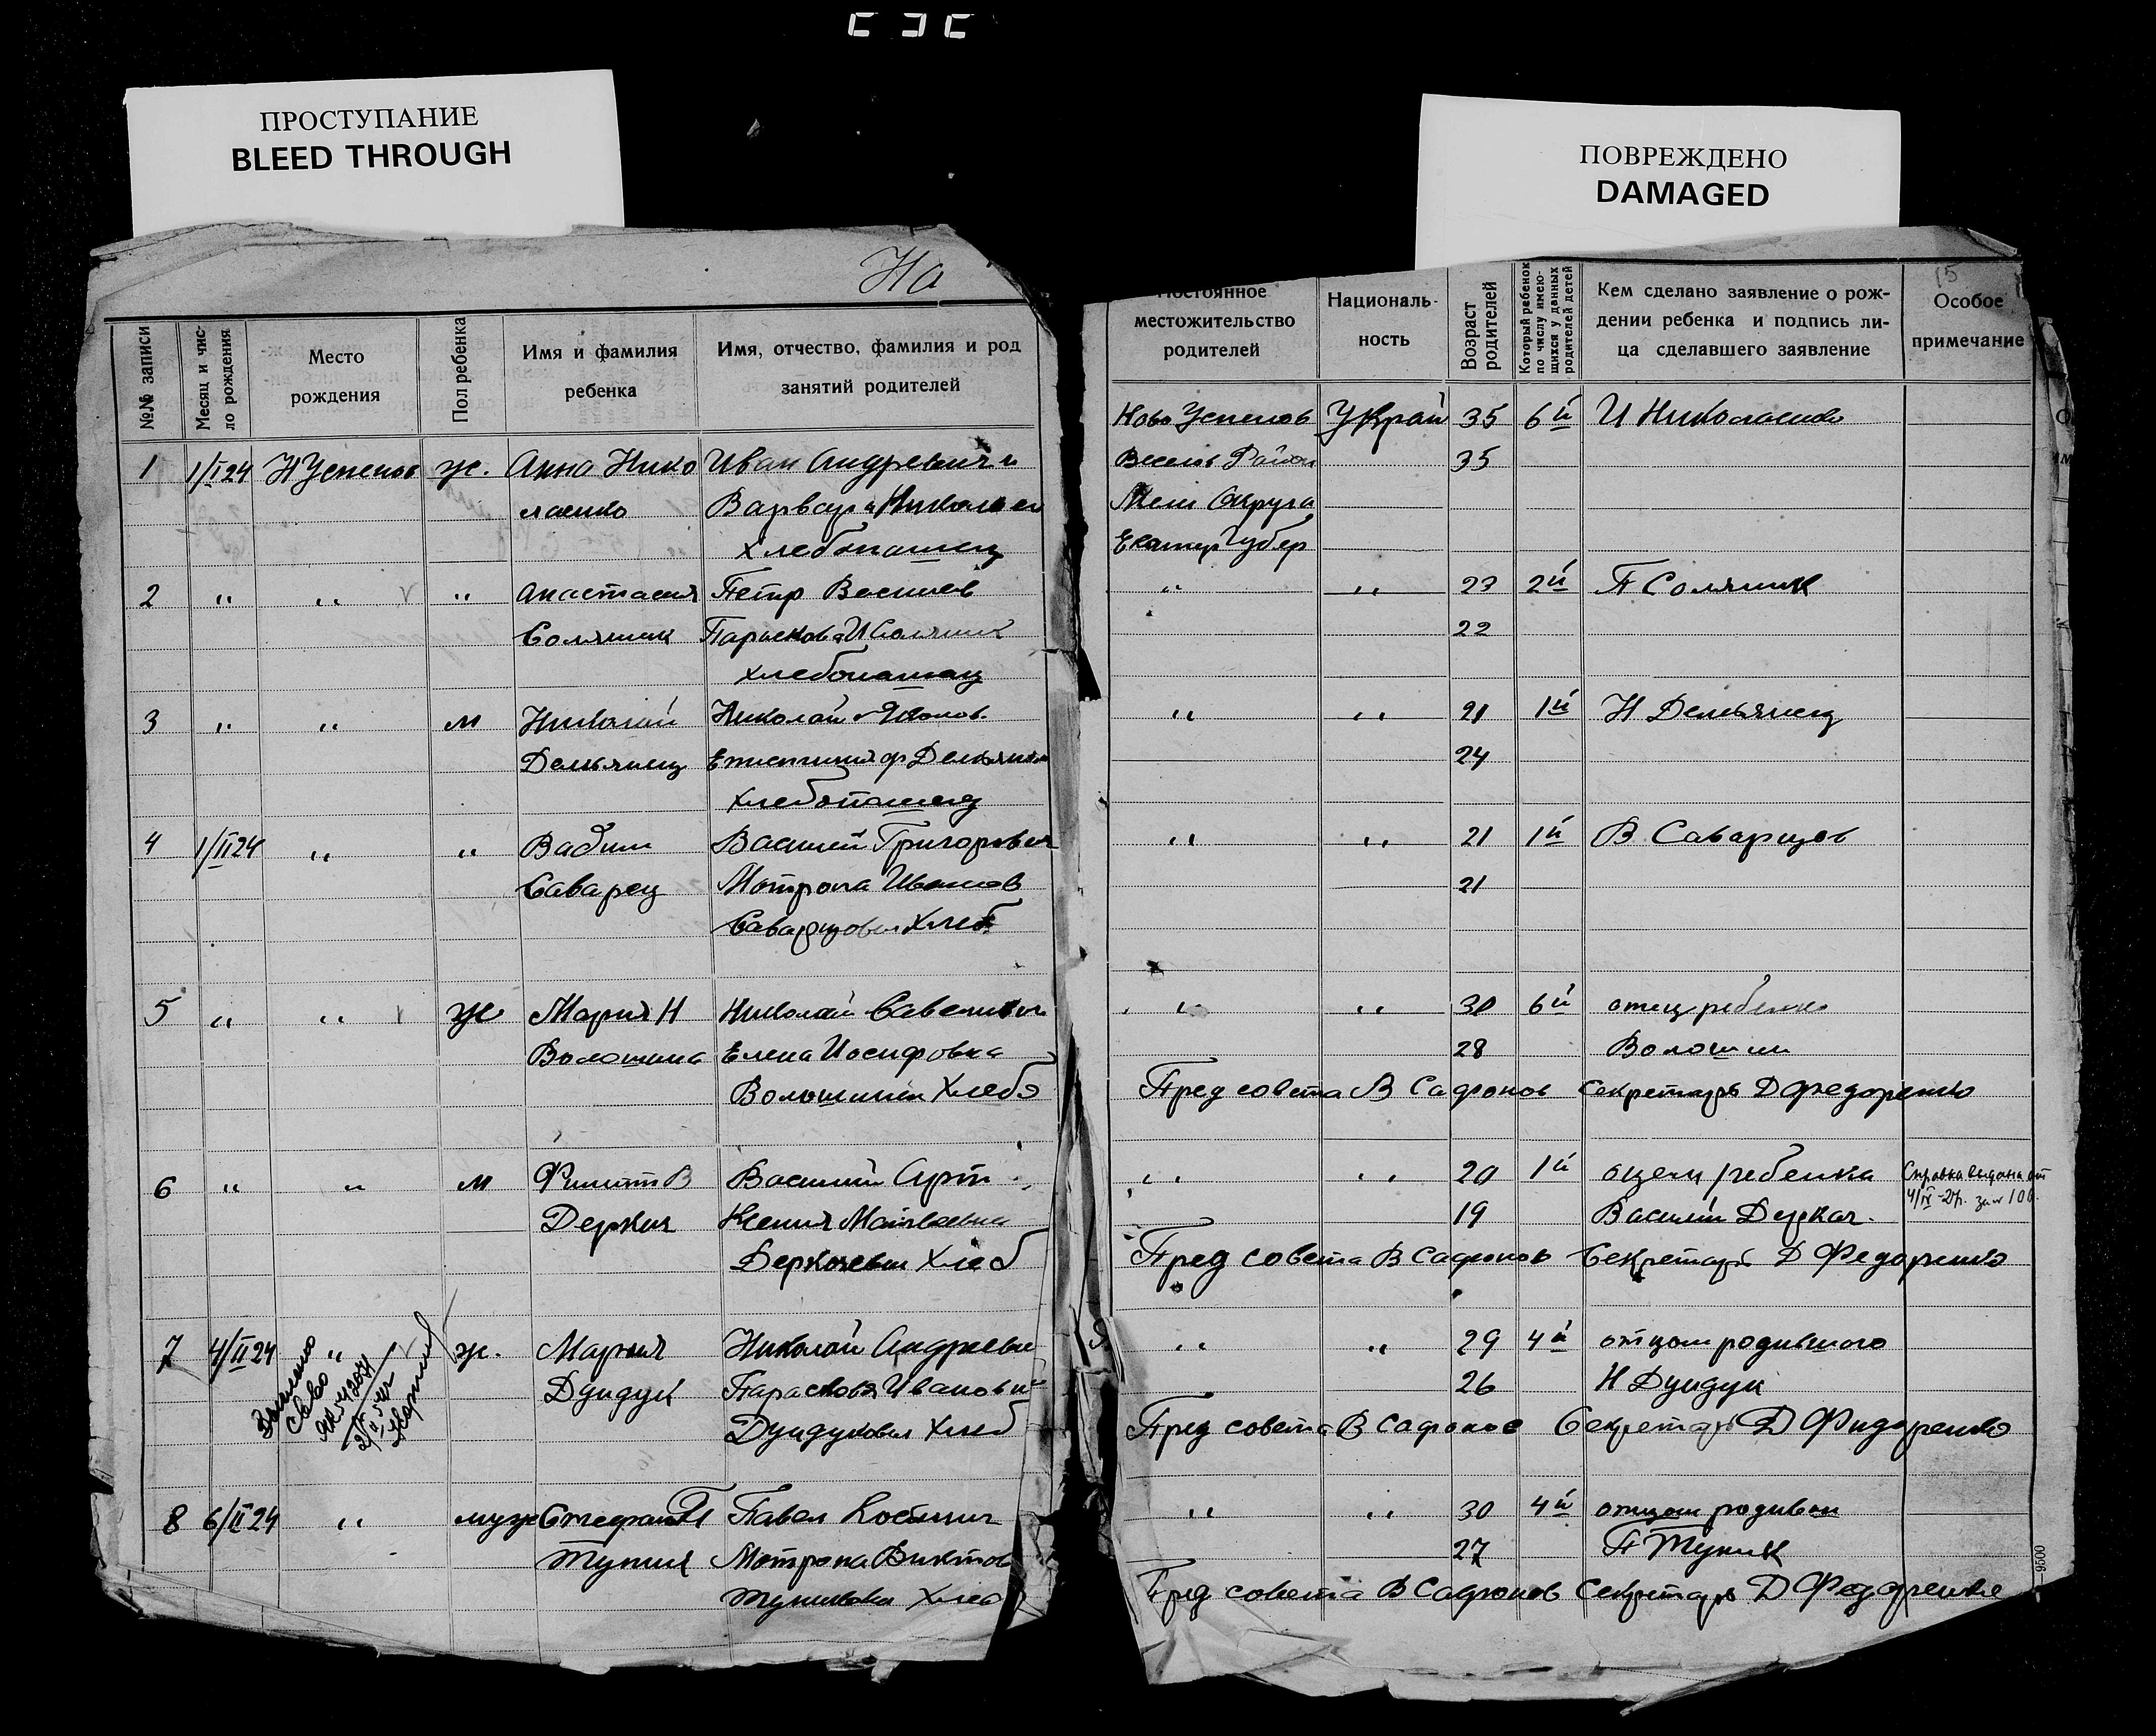 ПРОСТУПАНИЕ
BLEED THROUGH
ПОВРЕЖДЕНО
DAMAGED
На
№№ записи
Месяц и чис-
ло рождения
Место
рождения
Пол ребенка
Имя и фамилия
ребенка
Имя, отчество, фамилия и род
занятий родителей
1 1/I 24 Н Успенов ж. Анна Нико Иван Андреевич и
лаенко Варвара Николаен
хлебопашец
2 " " " Анастасия Петр Васильев
Соляник Парасковья И Соляник
хлебопашец
3 " " м Николай Николай Иванов.
Демьянец ф Демьянец
хлебопашец
4 1/II 24 " " Вадим Василий Григорович
Саварец Мотрона Иванов
Саварцовы хлеб
5 " " ж Мария Н Николай Савельевич
Волошина Елена Иосифовна
Волошины Хлебо
6 " " м Филипп В Василий Арт
Деркач Ксения Матвеевна
Деркачевы хлеб
7 4/II 24 " ж. Мария Николай Андреевич
Дундук Парасковья Ивановна
Дундуковы хлеб
8 6/II 24 " муж Стефан П Павел
Тупик Мотрона Виктов
Тупиковы Хлеб
15
Постоянное
местожительство
родителей
Националь-
ность
Возраст
родителей
Который ребенок
по числу имею-
щихся у данных
родителей детей
Кем сделано заявление о рож-
дении ребенка и подпись ли-
ца сделавшего заявление
Особое
примечание
Ново Успенов Украин 35 6й И Николаенко
Веселов Район 35
Мели Округа
Екатер Губер
" " 23 2й П Соляник
22
" " 21 1й Н Демьянец
24
" " 21 1й В Саварцов
21
" " 30 6й отец ребенка
28 Волошин
Пред совета В Сафонов Секретарь Д Федоренко
" " 20 1й отец ребенка Справка выдана от
4/IV-27г. за № 100
19 Василий Деркач.
Пред совета В Сафонов Секретарь Д Федоренко
" " 29 4й отцом родившого
26 Н Дундук
Пред совета В Сафонов Секретарь Д Фидоренко
" " 30 4й отцом родивши
27 П Тупик
Пред совета В Сафонов Секретарь Д Федоренко
9500